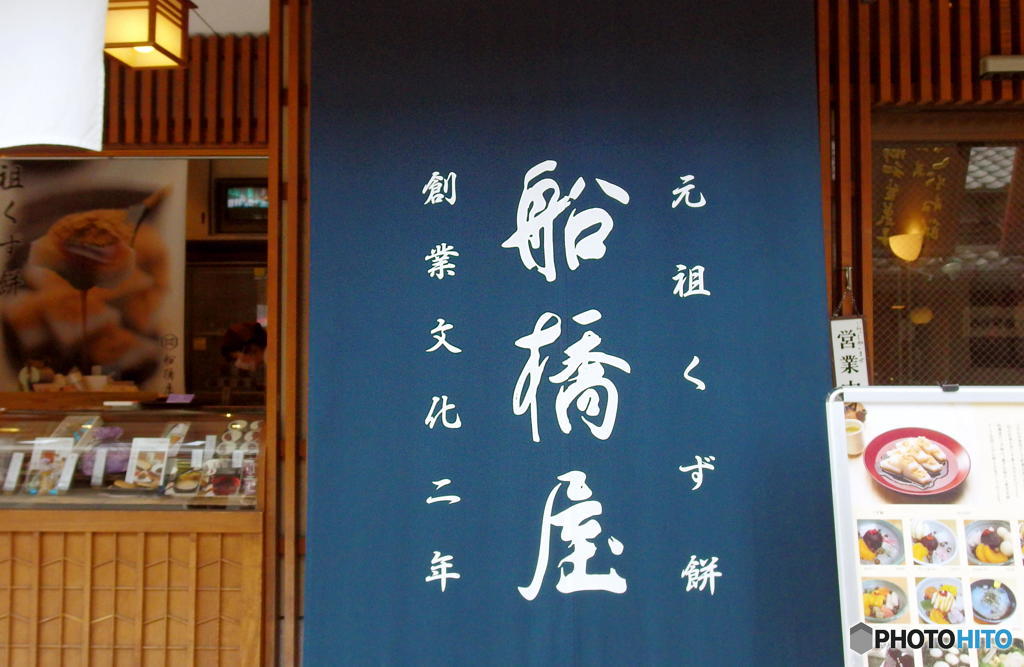 元祖くず餅
船橋屋
創業文化二年
営業中
祖くず餅
船橋屋
PHOTOHITO